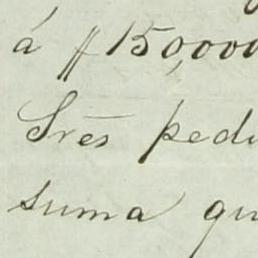 á $150,000
Sres pedi
suma qu